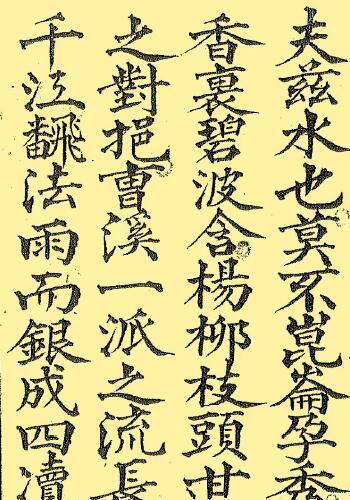 夫茲水也莫不崑崙孕秀
香裏碧波含楊柳枝頭甘
之對挹曹溪一派之流長
千江飜法雨而銀成四瀆